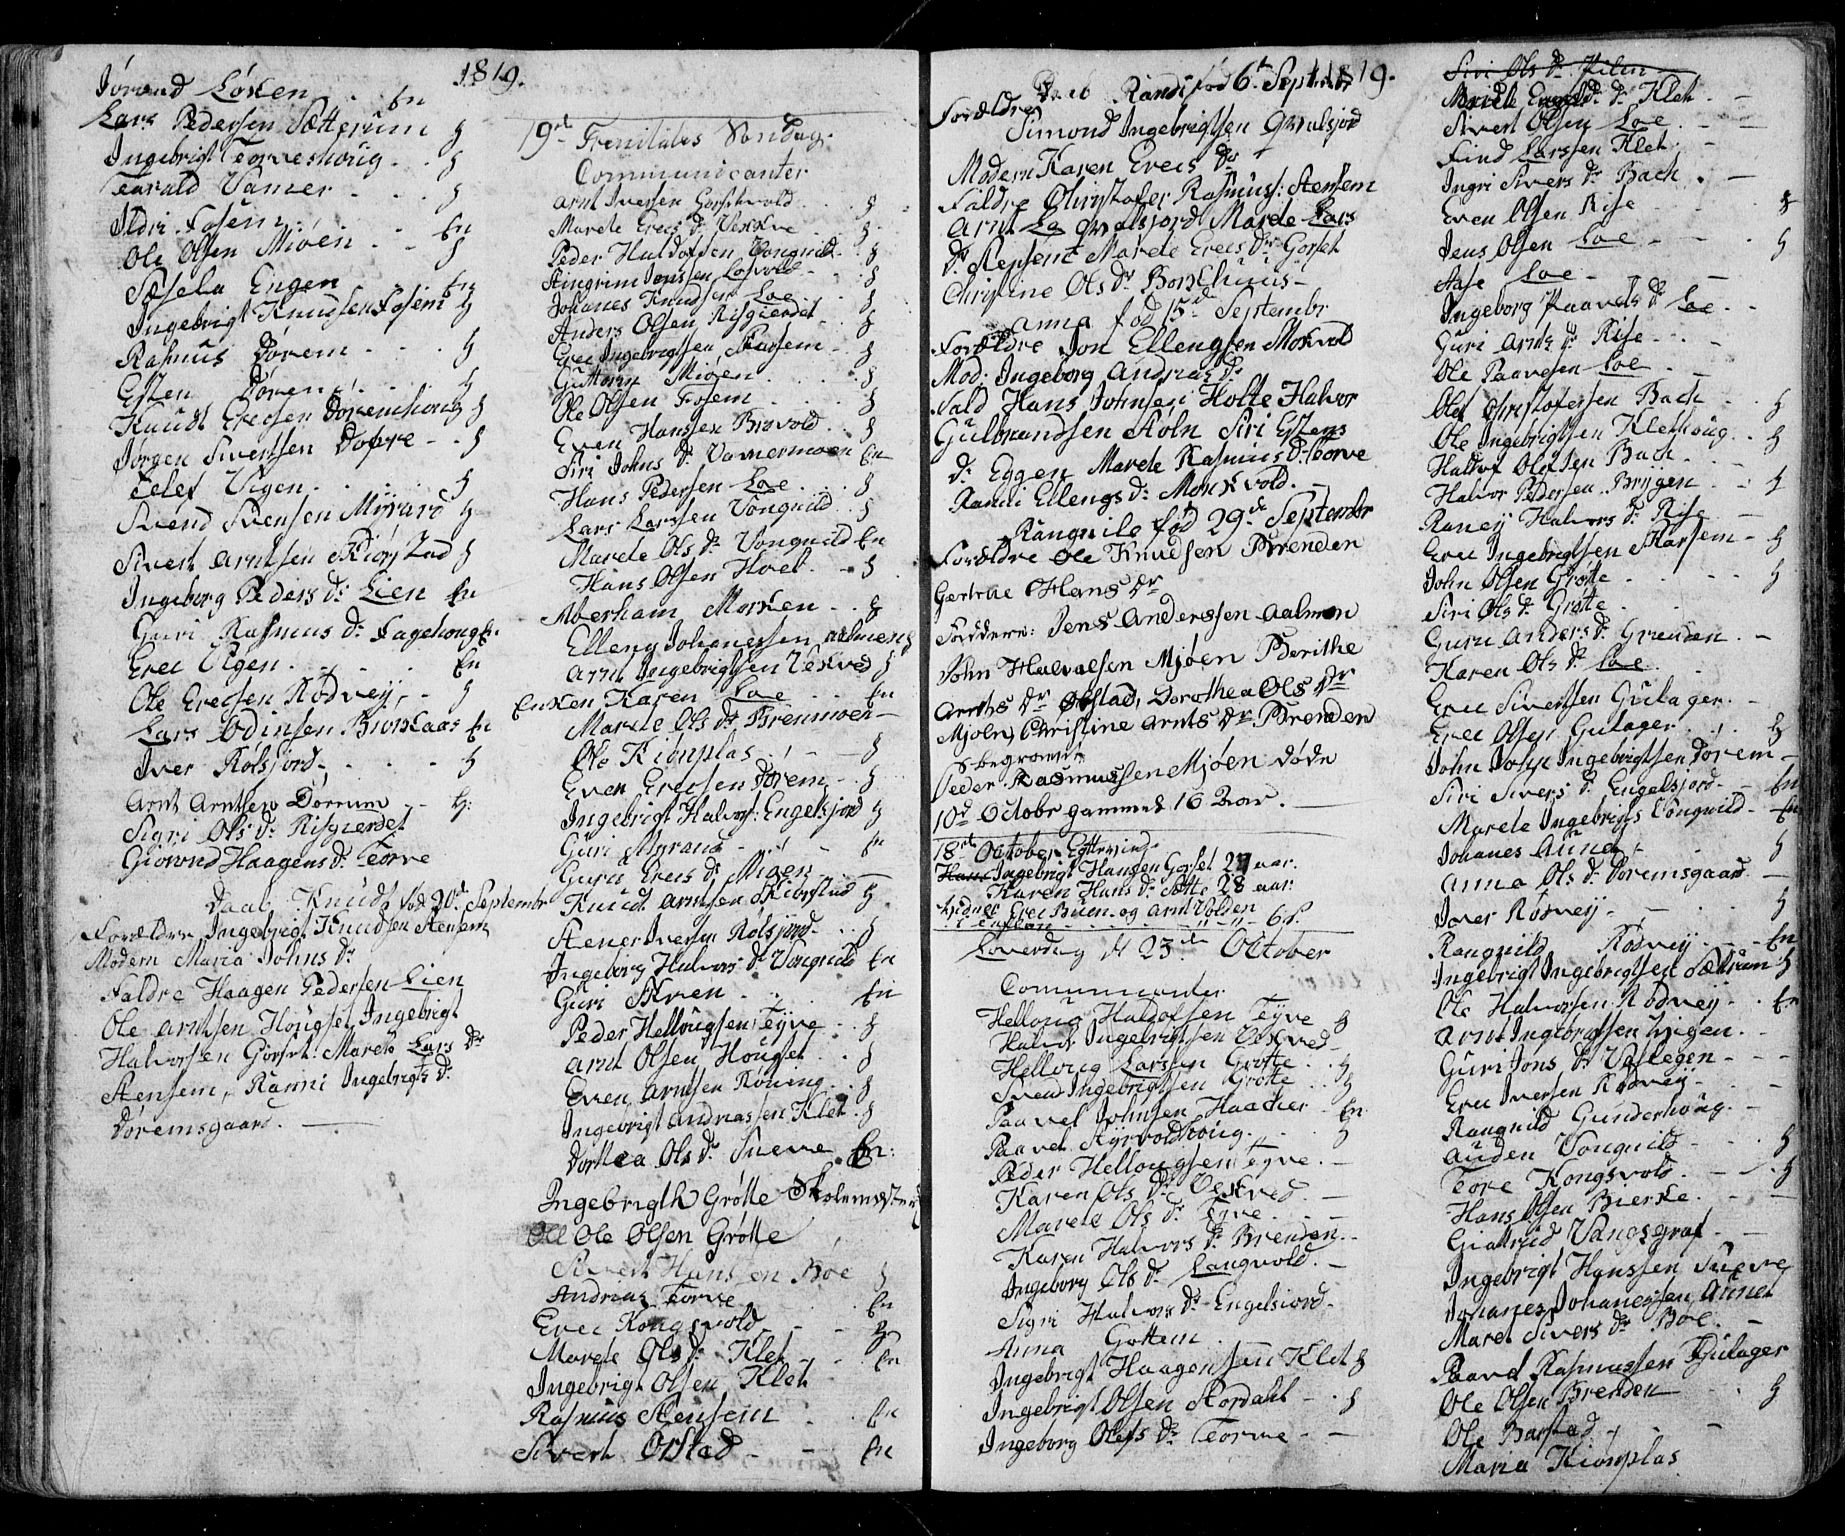 1819.
Jørand Løken . . En
Lars Pedersen Sætterum §
Ingebrigt Torveshoug . . §
Harald Vamer . . . §
Ildri Fosem . . En
Ole Olsen Mjøen . . §
Sæsela Engen . . En
Ingebrigt Knudsen Fosem §
Rasmus Dørem . . . §
Esten Dørem . . . §
Knudt Erecsen Doremshoug §
Jørgen Sivertsen Dofre - . §
Tølef Vigen . . . . §
Svend Svensen Myrard §
Sivert Arntsen Kiørstad §
Ingeborg Peders Dr Lien En
Guri Rasmus Dr Fagehoug En
Erec Vigen . . . . En
Ole Erecsen Rødvey, - §
Lars Odinsen Biørklaas En
Iver Rølsjord . . . . §
Arnt Arntsen Dørrum - - §
Sigri Ols Dr Risgierdet
Giørond Haagens Dr Torve
Daab Knud fød 20de Septembr
Forældre Ingebrigt Knudsen Stensem
Modern Maria Johns Dr
Faddre Haagen Pedersen Lien
Ole Arntsen Hougset Ingebrigt
Halvorsen Gorset Marete Lars Dr
Stensem, Ranni Ingebrigts Dr
Doremsgaard.
19de Trenitates Søndag.
Communicanter
Arnt Iversen Gorsetvold . . . §
Marete Erecs Dr Vekve - - §
Peder Haldorsen Vongnild . §
Stingrim Jonssen Losvold . . §
Johanes Knudsen Loe . . . §
Anders Olsen Risgierdet - §
Erec Ingebrigtsen Skarsem - . §
Guttorm Mioen . . . §
Ole Olsen Fosem . . . §
Even Hanssen Brovold . . §
Siri Johns Dr Vamermoen En
Hans Pedersen Loe . . . §
Lars Larssen Vongnild . . §
Marete Ols Dr Vongnild En
Hans Olsen Hoel . - §
Aberham Morken . . §
Elleng Johanessen Aalmen §
Arnt Ingebrigtsen Vekved §
Enken Karen Loe . . . En
Marete Ols Dr Brennmoen -
Ole Kiønplas . . - §
Even Erecsen Dørem - . §
Ingebrigt Halvors: Engelsjord §
Guri Myrand - . . En
Guru Erecs Dr Migen -
Knudt Arntsen Kiørstad §
Stener Iversen Rølsjord . . §
Ingeborg Halvors Dr Vongnild En
Guri Skven . . . En
Peder Hellougsen Tyve . . §
Arnt Olsen Houget . . §
Even Arntsen Koning . . §
Ingebrigt Andreassen Klet . §
Dorthea Ols Dr Sneve . En:
Ingebrigth Grøtte Skolemester
Ole Olsen Grøtte
Sivert Hanssen Boe §
Andreas Torve . . . En
Erec Kongsvold - - §
Marete Ols Dr Klet - . En
Ingebrigt Olsen Klet
Rasmus Stensem . . En
Sivert Orstad - - En
1819.
Daab Randi fød 6te Septembr
Forældre
Simond Ingebrigtsen Gravalsjord
Modern Karen Erecs Dr
Faldre Christofer Rasmuss: Stensem
Arnt Gravalsjord Marete Lars
Dr Stensem Marete Erecs Dr Gorset
Christine Ols Dr Borkhuus -
Anna fød 15de Septembr
Forældre Jon Ellengsen Morkvold
Mod: Ingeborg Andreas Dr
Fald Hans Johnsen Holte Halvor
Gulbrandsen Stoln Siri Estens
Dr Eggen Marete Rasmus Dr Torve
Ranni Ellengs Dr Morkvold. -
Rangnile fød 29de Septembr
Forældre Ole Knudsen Brenden
Gertrue Hans Dr
Faddere: Jens Anderssen Aalmen
John Halvalsen Mjøen Berithe
Arnts Dr Orstad, Dorothea Ols Dr
Mjoln Christine Arnts Dr Brenden
begravede
Peder Rasmussen Mjøen døde
10de Octobr gammel 16 2 aar.
18de October Egtevied
Ingebrigt Hansen Gorset 27 aar.
Karen Hans Dr Sotte 28 aar
Vidner Erec Buen og Arnt Volden
Løverdag d 23de October
Communicanter
Helloug Haldorsen Tyve §
Halvor Ingebrigtsen Vekved -
Helloug Larssen Grøtte . . §
Svend Ingebrigtsen Grøtte . . §
Paavel Johnsen Haacker . En
Paavel Kyrvoldhoug . . . §
Peder Hellougsen Tyve . -
Karen Ols Dr Vekved. -
Marete Ols Dr Tyve . . -
Karen Halvors Dr Brenden . -
Ingeborg Ols Dr Langvold. -
Sigri Halvors Dr Engelsiord.
Anna Gottem .
Ingebrigt Haagensen Klet §
Ingebrigt Olsen Stordahl - . §
Ingeborg Olefs Dr Torve - -
Siri Ols Dr Vilen
Marete Engels Dr Klet . -
Sivert Olsen Loe . - -
Find Larssen Klet . -
Ingri Sivers Dr Bach . -
Even Olsen Rise - - - §
Jens Olsen Loe - - . §
Aase Loe - - -
Ingeborg Paavels Dr Loe - .
Guri Arnts Dr Rise - - .
Ole Paavelsen Loe . -
Olef Christofersen Bach - . §
Ole Ingebrigtsen Klethoug . . §
Haldor Olefsen Bach . . -
Halvor Pedersen Bryggen - - §
Raney Halvors Dr Rise -
Erec Ingebrigtsen Skarsem - §
John Olsen Grøtte . - - §
Siri Ols Dr Grøtte . .
Guru Anders Dr Grenden . -
Karen Ols Dr Loe . .
Erec Sivertsen Gulager . -
Erec Olsen Gulager . . . §
John Ingebrigtsen Dørem -
Siri Sivers Dr Engelsjord - En
Marete Ingebrigts Vongnild - En
Johanes Aunet - . . §
Anne Ols Dr Doremsgaard . -
Iver Rødvey - - . §
Rangnild Rødvey - - En
Ingebrigt Ingebrigtsen Sætrum §
Ole Halvorsen Rødvey - . En
Arnt Ingebrigtsen Vigen . -
Guri Jons Dr Vaslegen - - -
Erec Iversen Rødvey - . -
Rangnild Gunderhoug . -
Auden Vongnild - . §
Tore Kongsvold. - - . §
Hans Olsen Bierke . - -
Giatrud Vangsgraf - -
Ingebrigt Hanssen Sneve
Johanes Johanessen Aunet
Maret Sivers Dr Boe . -
Paavel Rasmussen Gulager
Ole Olsen Brenden - . §
Ole Barstad - - -
Maria Kiønplas